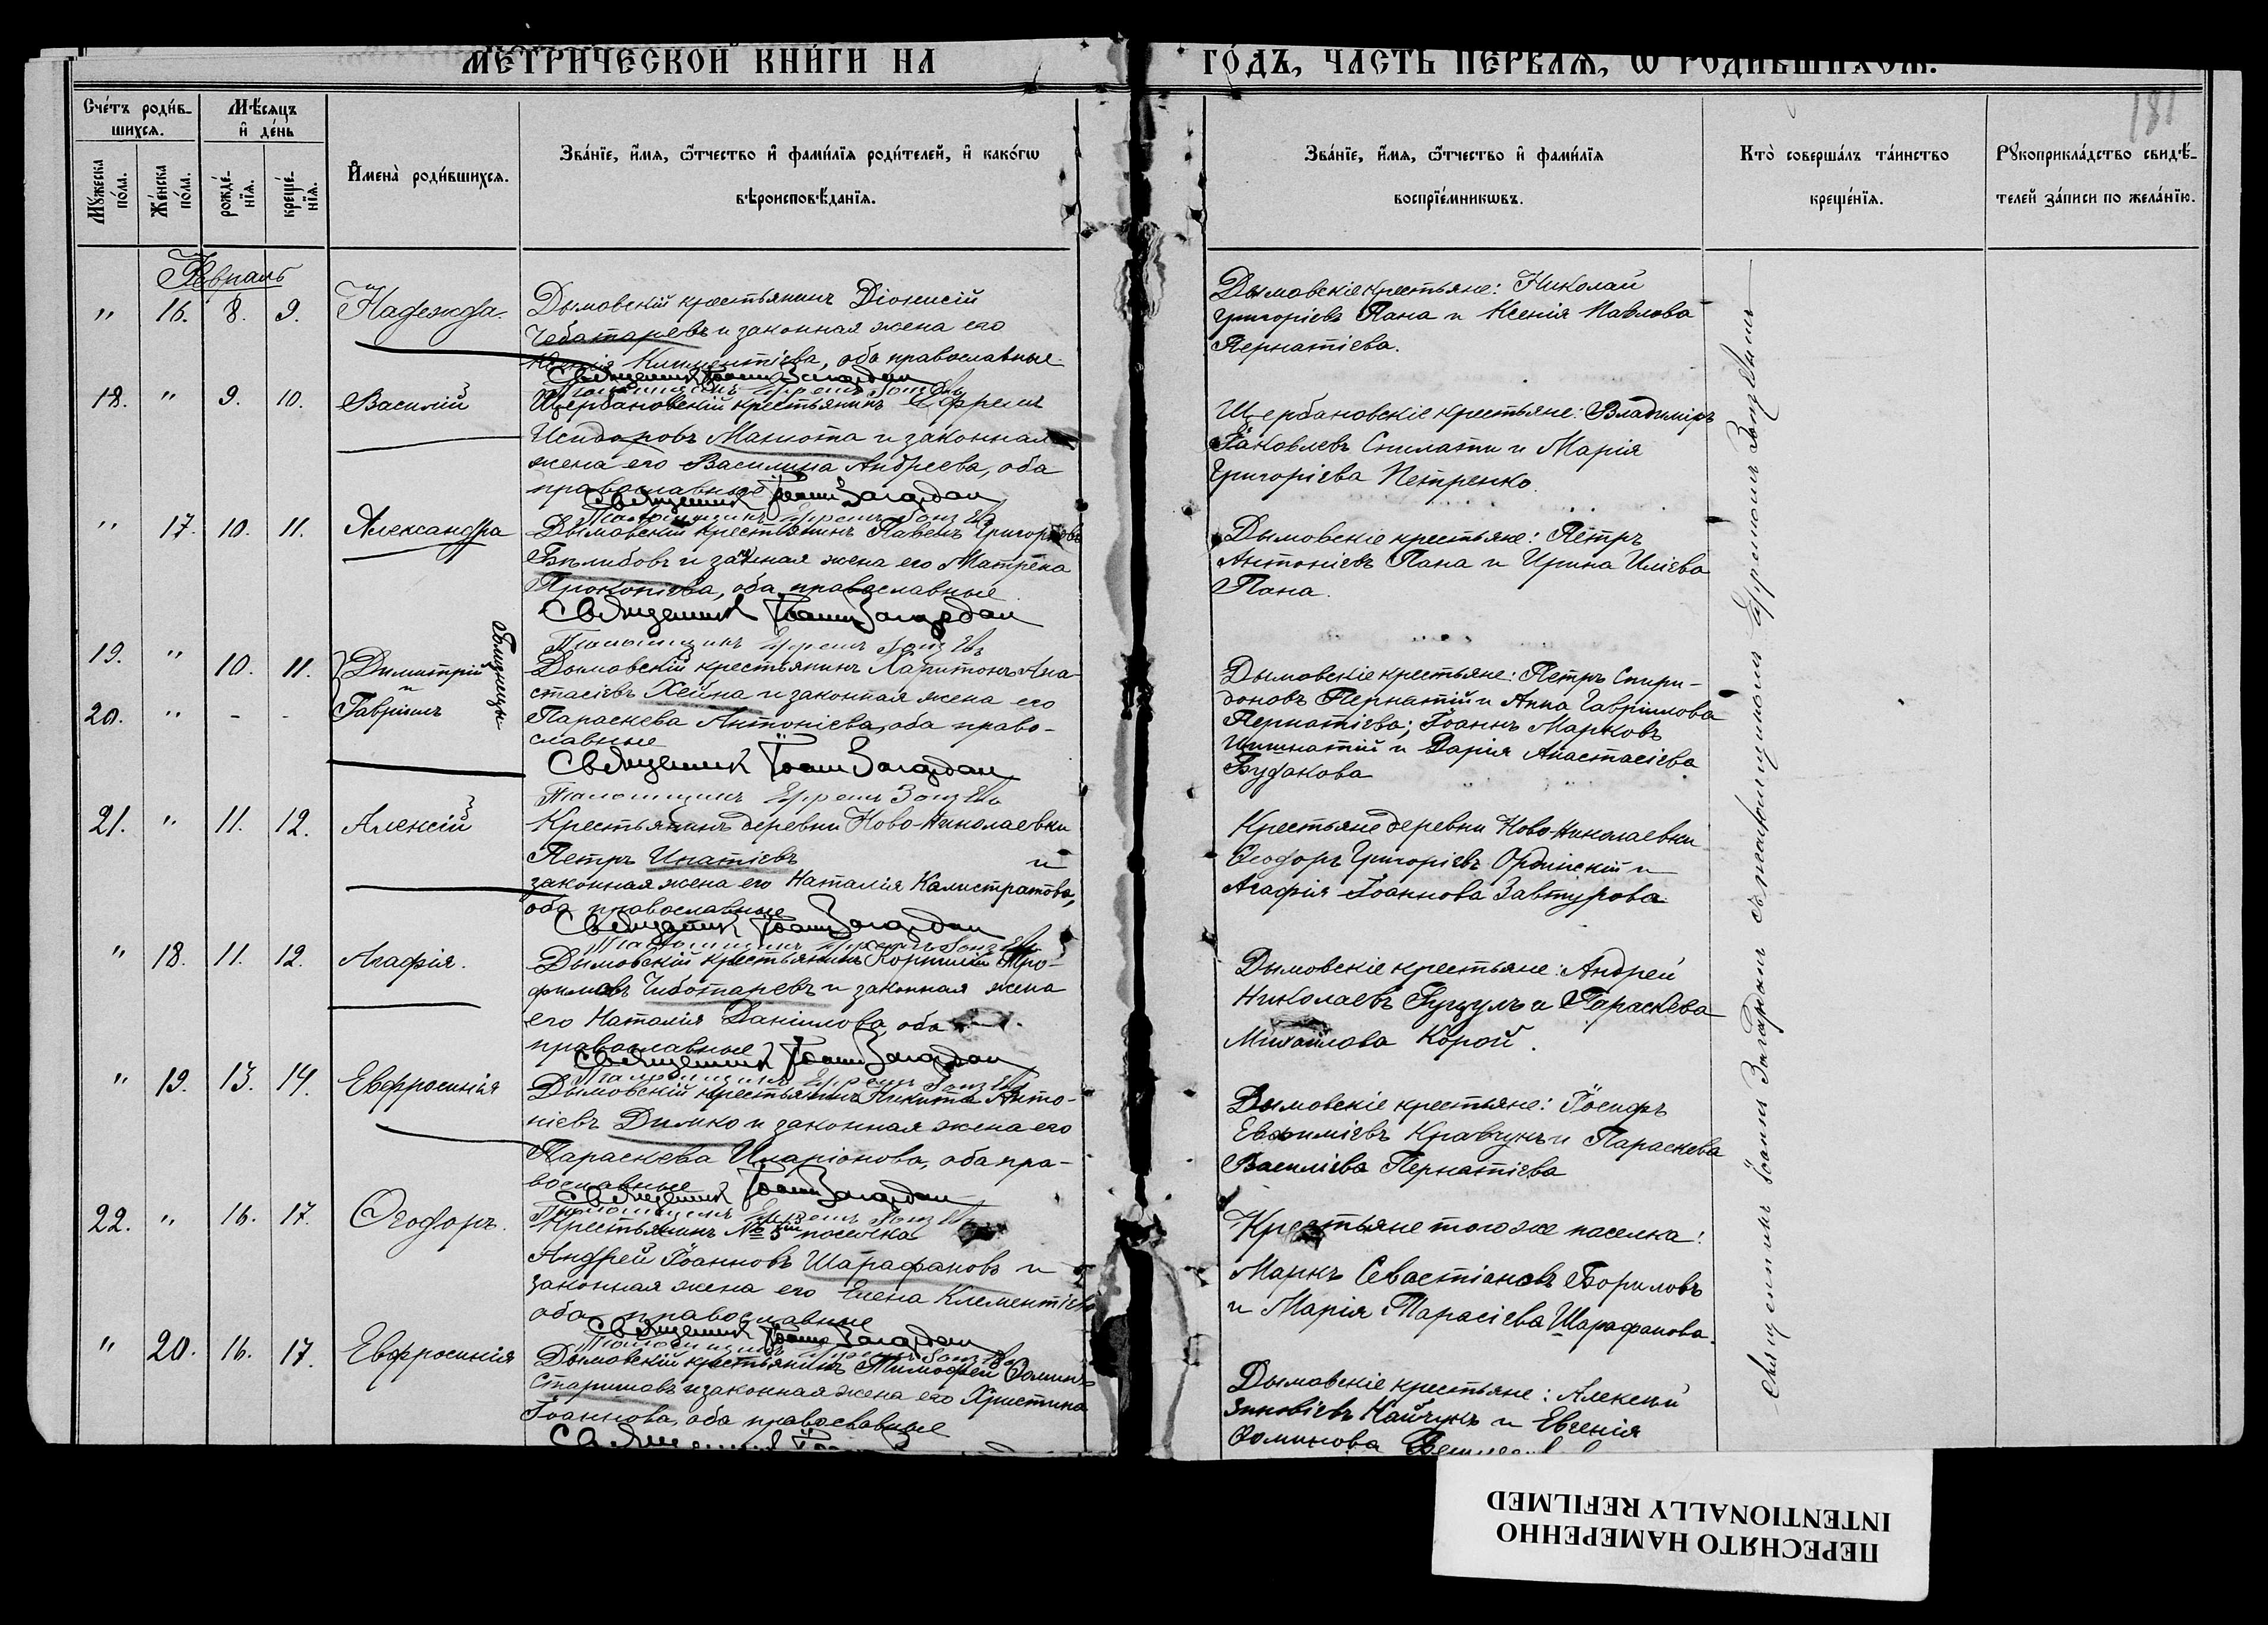 МЕТРИЧЕСКОЙ КНИГИ НА ГОДЪ, ЧАСТЬ ПЕРВАЯ, Ѡ РОДИВШИХСЯ.
181
Сче́тъ роди́в-
шихсѧ.
Мѣ́сѧцъ
и҆ де́нь
Мꙋ́жеска по́ла.
Же́нска по́ла.
рожде́-нїѧ.
креще́-нїѧ.
И҆мена̀ роди́вшихсѧ.
Зва́нїе, и҆́мѧ, ѻ҆́тчество и҆ фами́лїѧ роди́телей, и҆ како́гѡ
вѣроисповѣ́данїѧ.
Зва́нїе, и҆́мѧ, ѻ҆́тчество и҆ фами́лїѧ
воспрїе́мникѡвъ.
Кто̀ соверша́лъ та́инство
креще́нїѧ.
Рꙋкоприкла́дство свидѣ́-
телей за́писи по жела́нїю.
Февраль
" 16. 8. 9. Надежда.
Дымовскій крестьянинъ Діонисій
Чеботаревъ и законная жена его
Климентіева, оба православные.
Священникъ Іоаннъ Загардан
Дымовскіе крестьяне: Николай
Григоріевъ Пана и Ксенія Павлова
Пернатіева.
18. " 9. 10. Василій
Щербановскій крестьянинъ Ефремъ
Исидоровъ Манюта и законная
жена его Василина Андреева, оба
православные
Священникъ Іоаннъ Загардан
Щербановскіе крестьяне: Владиміръ
Яковлевъ и Марія
Григоріева Петренко.
" 17. 10. 11. Александра
Дымовскій крестьянинъ Павелъ Григорьевъ
и зак҃нная жена его Матрена
Прокопіева, оба православные.
Священникъ Іоаннъ Загардан
Дымовскіе крестьяне: Петръ
Антоніевъ Пана и Ирина Иліева
Пана.
19. " 10. 11. Димитрій
и
20. " - - Гавріилъ
близнецы
Дымовскій крестьянинъ Харитонъ Ана-
стасіевъ Хейна и законная жена его
Параскева Антоніева, оба право-
славные
Священникъ Іоаннъ Загардан
Дымовскіе крестьяне: Петръ Спири-
доновъ Пернатій и Анна Гавріилова
Пернатіева; Іоаннъ Марковъ
и Дарія Анастасіева
Будакова
21. " 11. 12. Алексій
Крестьянинъ деревни Ново-Николаевки
Петръ Игнатіевъ и
законная жена его Наталія Калистратова,
оба православные
Священникъ Іоаннъ Загардан
Крестьяне деревни Ново-Николаевки
Ѳеодоръ Григоріевъ Ординскій и
Агафія Іоаннова Завтурова
" 18. 11. 12. Агафія.
Дымовскій крестьянинъ Корнилій Тро-
фимовъ Чиботаревъ и законная жена
его Наталія Даніилова, оба
православные
Священникъ Іоаннъ Загардан
Дымовскіе крестьяне: Андрей
Николаевъ Гуцулъ и Параскева
Михайлова Корой.
" 19. 13. 14. Евфросинія
Дымовскій крестьянинъ Никита Анто-
ніевъ Димко и законная жена его
Параскева Иларіонова, оба пра-
вославные
Священникъ Іоаннъ Загардан
Дымовскіе крестьяне: Іосифъ
Евфиміевъ Кравчукъ и Параскева
Василіева Пернатіева
22. " 16. 17. Ѳеодоръ.
Крестьянинъ № 5й поселка
Андрей Іоанновъ Шарафановъ и
законная жена его Елена Клементіева
оба православные
Священникъ Іоаннъ Загардан
Крестьяне того же поселка:
Маркъ Севастіановъ Бориловъ
и Марія Тарасіева Шарафанова.
" 20. 16. 17. Евфросинія
Дымовскій крестьянинъ Тимофей Ѳоминъ
Старишовъ и законная жена его Христина
Іоаннова, оба православные
Дымовскіе крестьяне: Алексій
Зиновіевъ Кайчукъ и Евгенія
Ѳоминова
Священникъ Іоаннъ Загарданъ съ псаломщикомъ Ефремомъ
ПЕРЕСНЯТО НАМЕРЕННО
INTENTIONALLY REFILMED